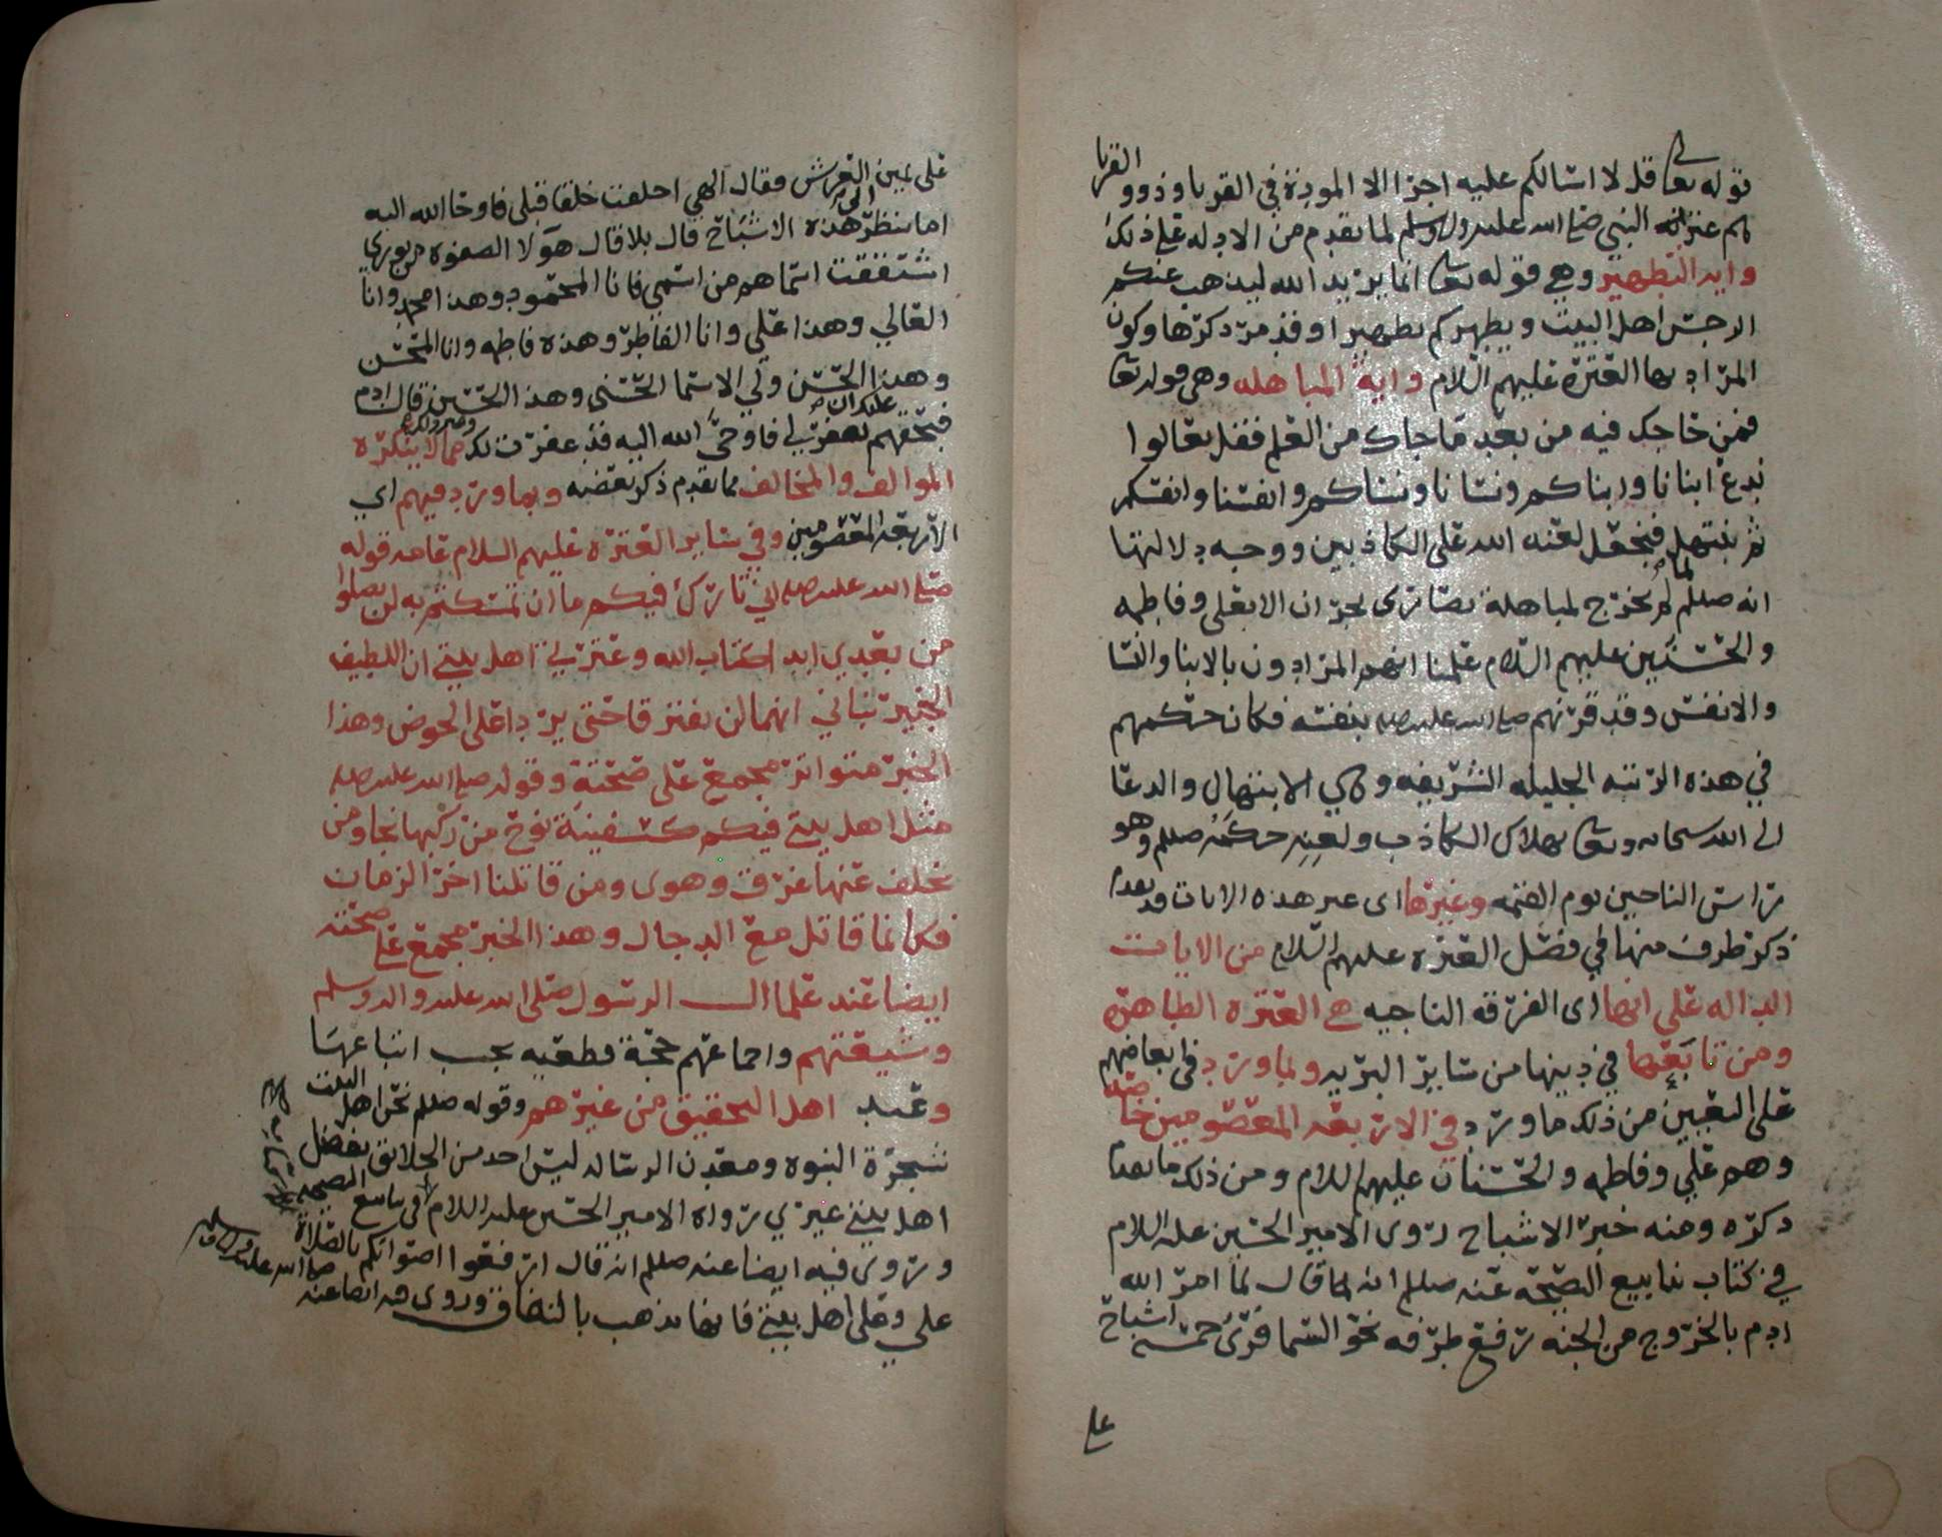 قوله تعالى قل لا اسالكم عليه اجرا الا المودة في القربا وذوو القربا
هم عترته النبي صلى الله عليه واله وسلم لما تقدم من الادله على ذلك
وايه التطهير وهي قوله تعالى انما يريد الله ليذهب عنكم
الرجس اهل البيت ويطهركم تطهيرا وقد مر ذكرها وكون
المراد بها العترة عليهم السلام واية المباهله وهي قوله تعالى
فمن حاجك فيه من بعد ما جاك من العلم فقل تعالوا
ندع ابنانا وابناكم ونسانا ونساكم وانفسنا وانفسكم
ثم نبتهل فنجعل لعنه الله على الكاذبين ووجه دلالتها
انه صللم لما لم يخرج لمباهلة نصارى نجران الا بعلي وفاطمه
والحسنين عليهم السلام علمنا انهم المرادون بالابنا والنسا
والانفس وقد قرنهم صلى الله عليه واله بنفسه فكان حكمهم
في هذه الرتبه الجليله الشريفه وهي الابتهال والدعا
الى الله سبحانه وتعالى بهلاك الكاذب ولعنه حكمه صللم وهو
راس الناجين يوم القيمه وغيرها اى غير هذه الايات قد تقدم
ذكر طرف منها في فضل العترة عليهم السلام من الايات
الداله على انها اى الفرقه الناجيه هي العترة الطاهرة
ومن تابعها في دينها من ساير البريه وبما ورد فمن ابعاضهم
على التعيين من ذلك ما ورد في الاربعه المعصومين خاصه
وهم علي وفاطمه والحسنان عليهم السلام ومن ذلك ما تقدم
ذكره ومنه خبر الاشباح روى الامير الحسين عليه السلام
في كتاب ينابيع النصيحه عنه صللم انه لما قال لما امر الله
ادم بالخروج من الجنه رفع طرفه نحو السما فرى خمسه اشباح
على
على يمين العرش فقال الهي اخلقت خلقا قبلي فاوحا الله اليه
اما تنظر الى هذه الاشباح قال بلا قال هولا الصفوه من نوري
اشتققت اسماهم من اسمي فانا المحمود وهذا محمد وانا
العالي وهذا علي وانا الفاطر وهذه فاطمه وانا المحسن
وهذا الحسن ولي الاسما الحسنى وهذا الحسين قال ادم
فبحقهم عليك ان تغفر لي فاوحى الله اليه قد غفرت لك وغير ذلك مما لا ينكره
الموالف والمخالف مما تقدم ذكر بعضه وبما ورد فيهم اي
الاربعه المعصومين وفي ساير العترة عليهم السلام عامه قوله
صلى الله عليه واله اني تارك فيكم ما ان تمسكتم به لن تضلوا
من بعدي ابدا كتاب الله وعترتي اهل بيتي ان اللطيف
الخبير نباني انهما لن يفترقا حتى يردا على الحوض وهذا
الخبر متواتر مجمع على صحته وقوله صلى الله عليه واله
مثل اهل بيتي فيكم كسفينة نوح من ركبها نجا ومن
تخلف عنها غرق وهوى ومن قاتلنا اخر الزمان
فكانما قاتل مع الدجال وهذا الخبر مجمع على صحته
ايضا عند علما ال الرسول صلى الله عليه واله وسلم
وشيعتهم واجماعهم حجة قطعيه يجب اتباعها
وعند اهل التحقيق من غيرهم وقوله صللم نحن اهل البيت
شجرة النبوه ومعدن الرساله ليس احد من الخلائق يفضل
اهل بيتي غيري رواه الامير الحسين عليه السلام في ينابيع النصيحه
وروى فيه ايضا عنه صللم انه قال ارفعوا اصواتكم بالصلاة
علي وعلى اهل بيتي فانها تذهب بالنفاق وروى فيه ايضا عنه صلى الله عليه واله وسلم